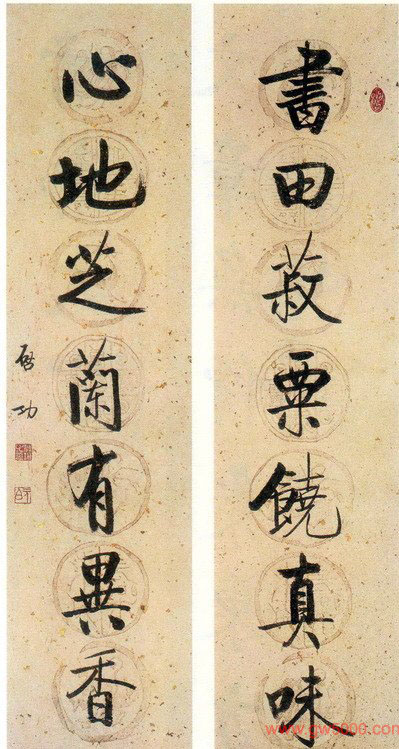 書田菽粟饒真味
心地芝蘭有異香
啟功
www.gw5000.com